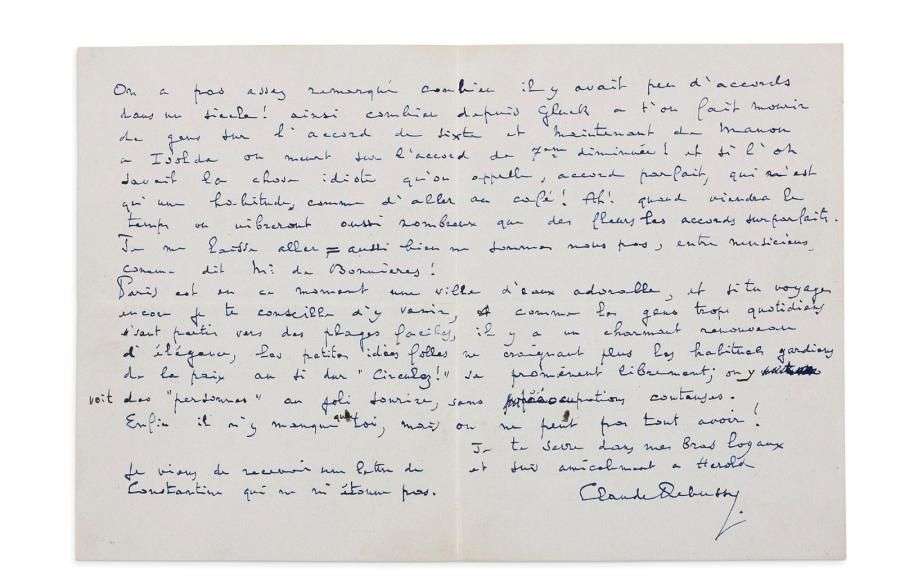 On a pas assez remarqué combien il y avait peu d'accords
dans un siècle! ainsi combien depuis Gluck a t'on fait mourir
de gens sur l'accord de sixte et maintenant de Manon
a Isolde on meurt sur l'accord de 7ème diminuée! et si l'on
savait la chose idiote qu'on appelle, accord parfait, qui n'est
qu'une habitude, comme d'aller au café! Ah! quand viendra le
temps ou vibreront aussi nombreux que des fleurs les accords surparfaits.
Je me laisse aller = aussi bien ne sommes nous pas, entre musiciens,
comme dit Mr: de Bonnières!
Paris est en ce moment une ville d'eaux adorable, et si tu voyages
encore je te conseille d'y venir, comme les gens trops quotidiens
s'sont partir vers des plages faciles, il y a un charmant renouveau
d'élégance, les petites idées folles ne craignant plus les habituels gardiens
de la paix au si dur "Circulez!" se promènent librement; on y
voit des "personnes" au joli sourire, sans préoccupations couteuses.
Enfin il n'y manque que toi, mais on ne peut pas tout avoir!
Je te serre dans mes bras loyaux
et suis amicalement a Herold
Claude Debussy
Je viens de recevoir une lettre de
Constantine qui ne m'étonne pas.